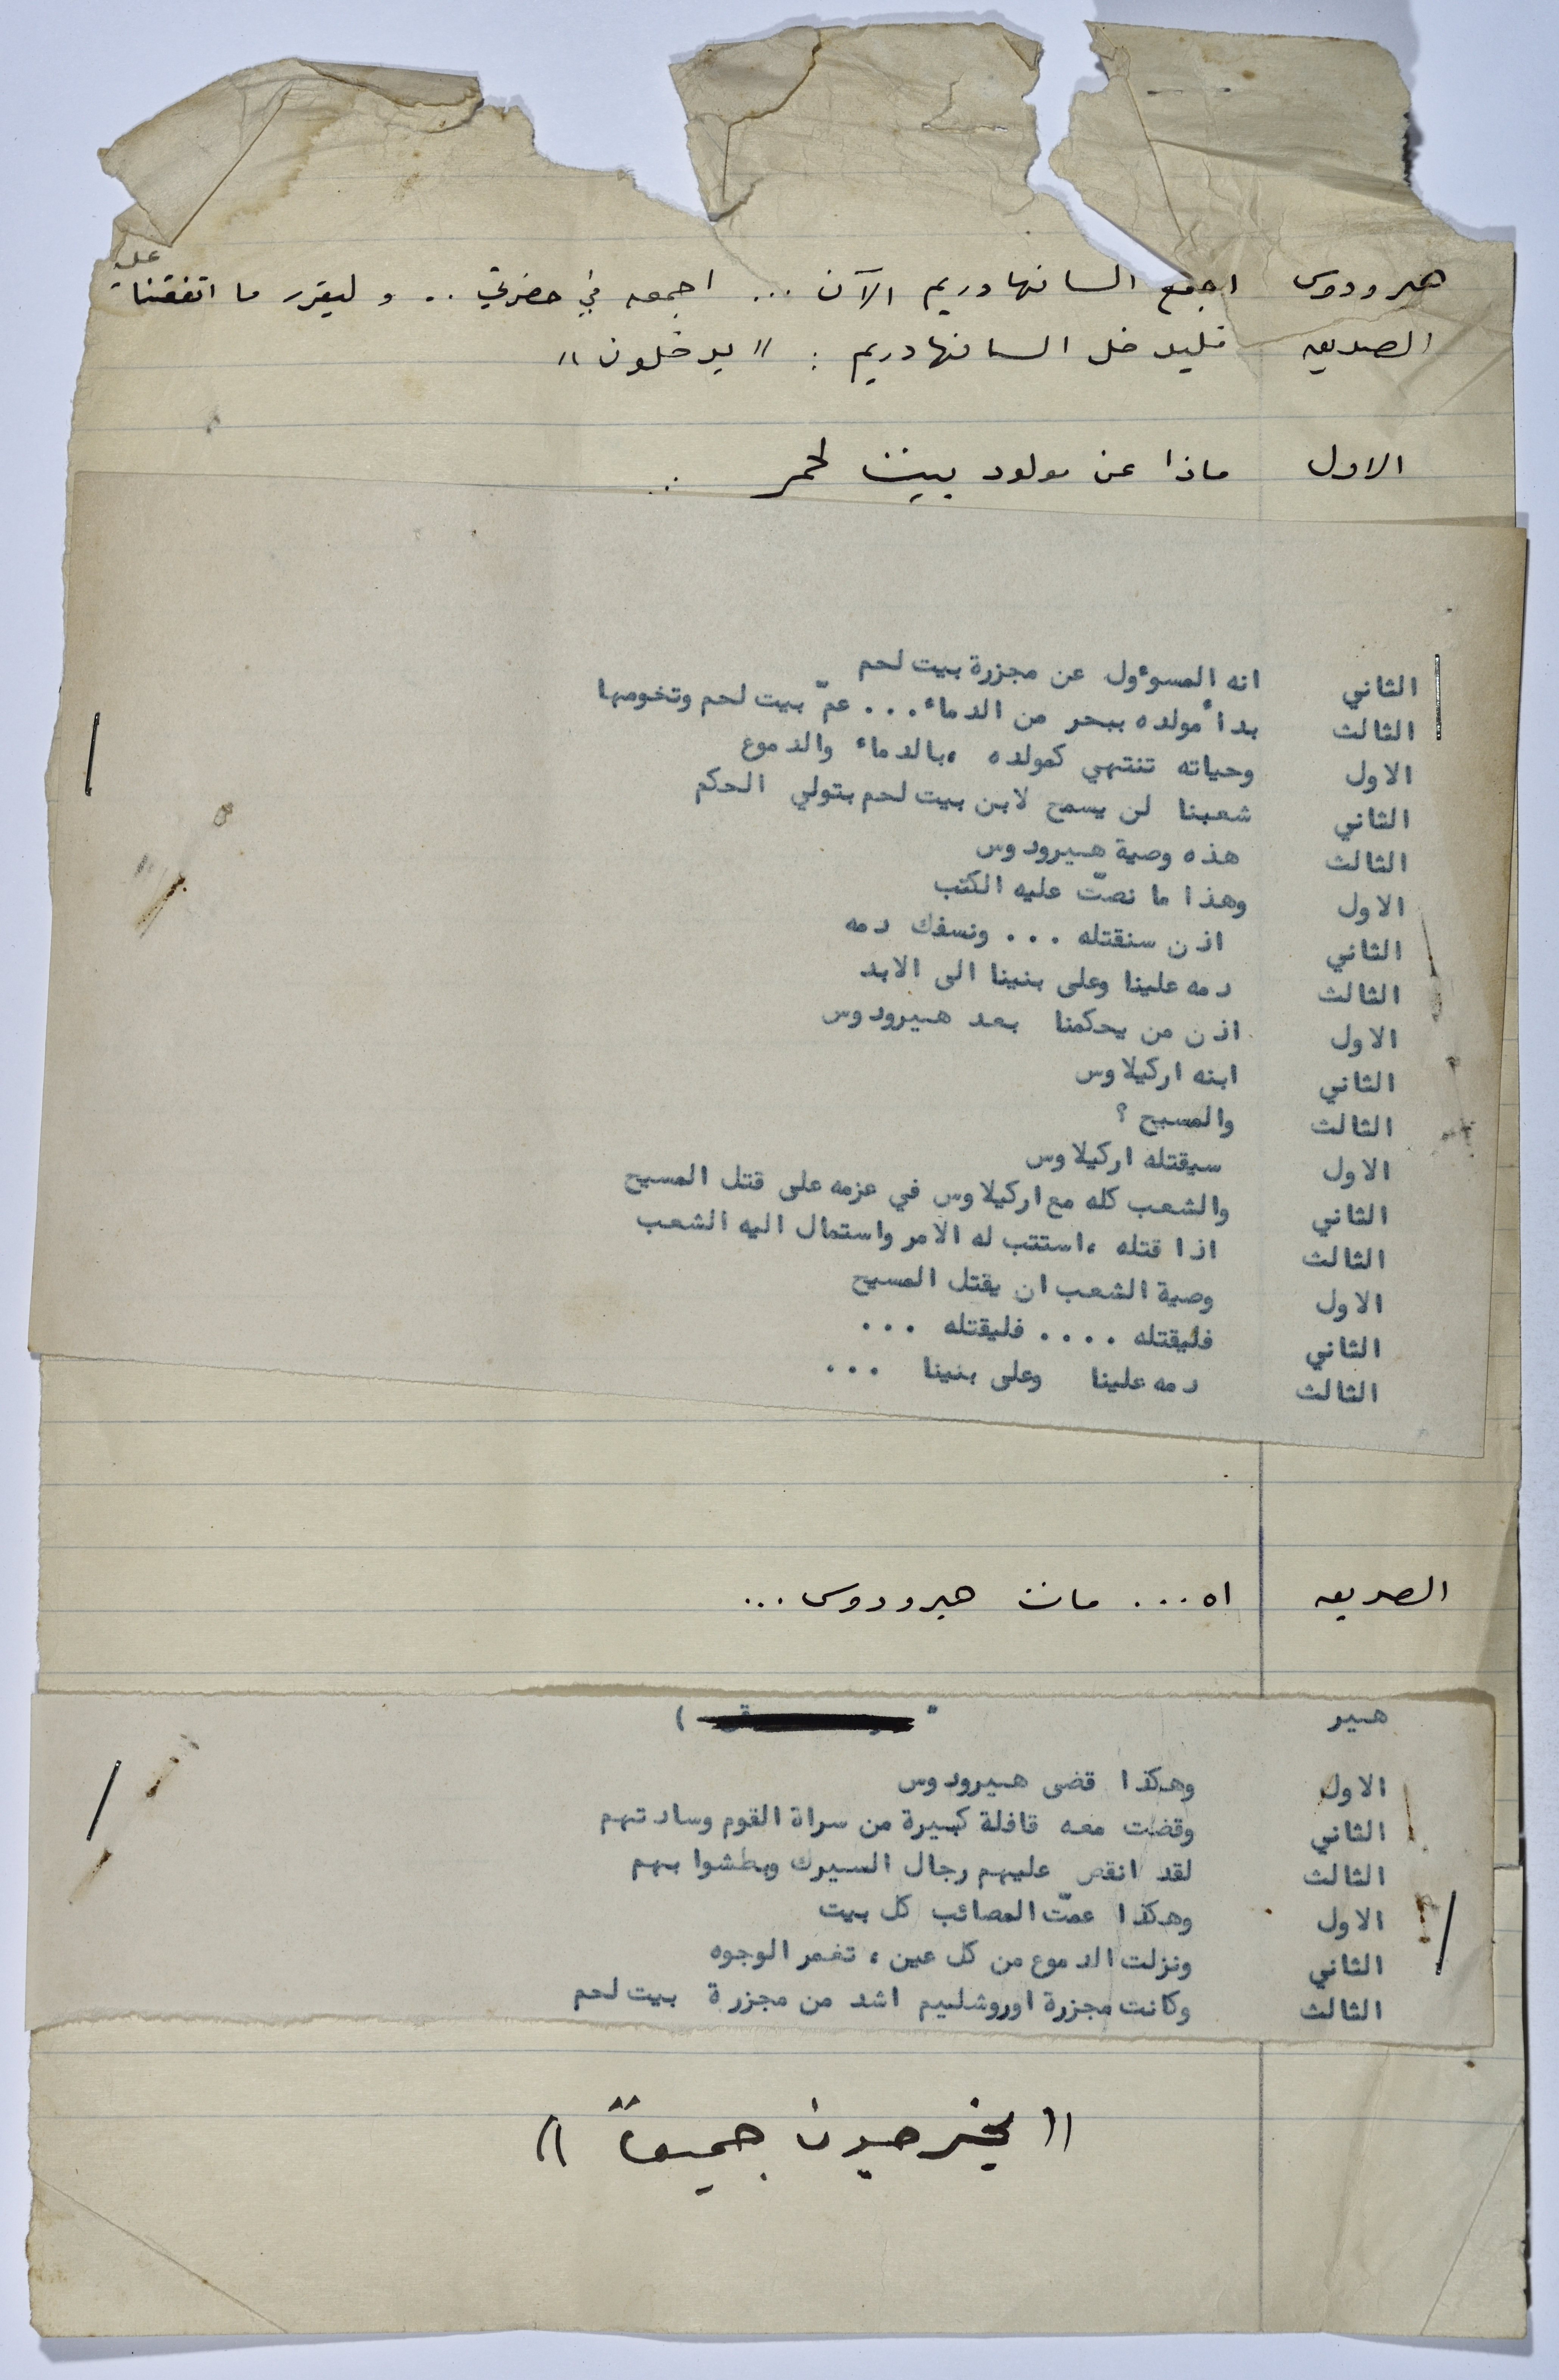 هيرودوس اجمع السانهادريم الآن ... اجمعه في حضرتي .. وليقرر ما اتفقنا على
الصديق فليدخل السانهادريم : " يدخلون "
الاول ماذا عن مولود بيت لحم ..
الثاني انه المسوءول عن مجزرة بيت لحم
الثالث بدأ مولده ببحر من الدماء ... عمّ بيت لحم وتخومها
الاول وحياته تنتهي كمولده ، بالدماء والدموع
الثاني شعبنا لن يسمح لابن بيت لحم بتولي الحكم
الثالث هذه وصية هيرودوس
الاول وهذا ما نصّت عليه الكتب
الثاني اذن سنقتله ... ونسفك دمه
الثالث دمه علينا وعلى بنينا الى الابد
الاول اذن من يحكمنا بعد هيرودوس
الثاني ابنه اركيلاوس
الثالث والمسيح ؟
الاول سيقتله اركيلاوس
الثاني والشعب كله مع اركيلاوس في عزمه على قتل المسيح
الثالث اذا قتله ، استتب له الامر واستمال اليه الشعب
الاول وصية الشعب ان يقتل المسيح
الثاني فليقتله .... فليقتله ...
الثالث دمه علينا وعلى بنينا ...
الصديق اه ... مات هيرودوس ...
هير )
الاول وهكذا قضى هيرودوس
الثاني وقضت معه قافلة كبيرة من سراة القوم وسادتهم
الثالث لقد انقض عليهم رجال السيرك وبطشوا بهم
الاول وهكذا عمّت المصائب كل بيت
الثاني ونزلت الدموع من كل عين ، تغمر الوجوه
الثالث وكانت مجزرة اوروشليم اشد من مجزرة بيت لحم
(( يخرجون جميعاً ))